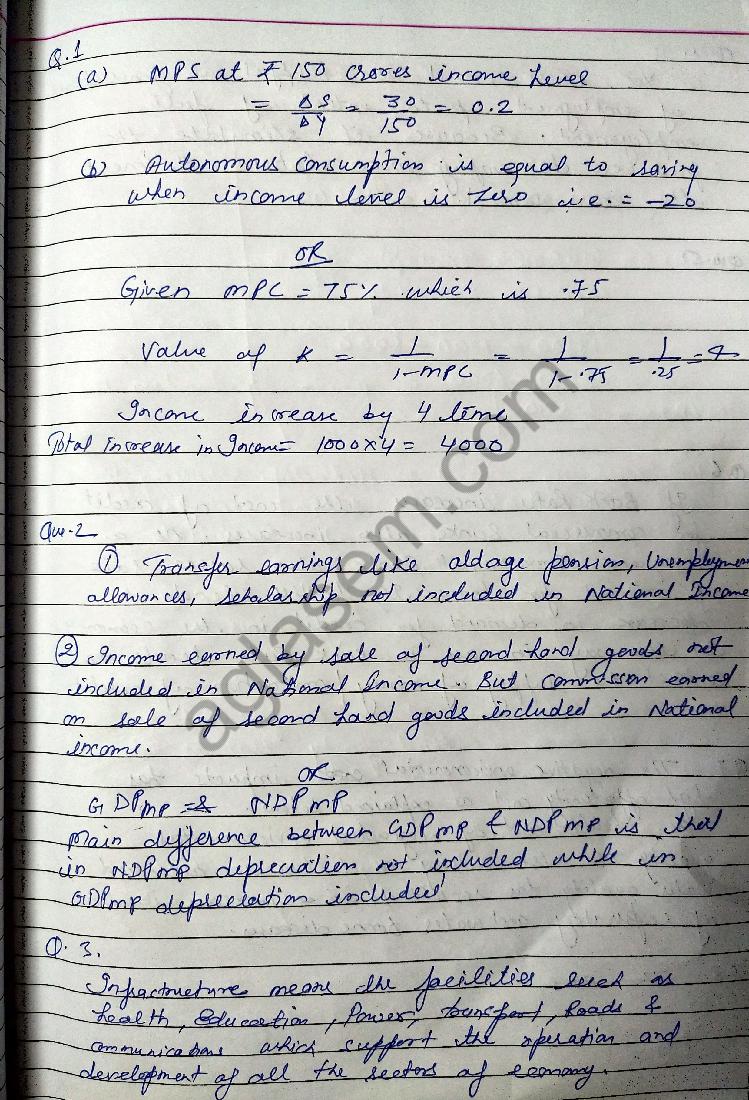 Q.1
(a) MPS at ₹ 150 crores income Level
= ΔS/ΔY = 30/150 = 0.2
(b) Autonomous consumption is equal to saving
when income level is zero i.e. = -20
OR
Given MPC = 75% which is .75
Value of K = 1/1-MPC = 1/1-.75 = 1/.25 = 4
Income increase by 4 time
Total Increase in Income = 1000×4 = 4000
Que-2
① Transfer earnings like oldage pension, Unemploymen
allowances, scholarship not included in National Income
② Income earned by sale of second hand goods not
included in National Income. But commisson earned
on sale of second hand goods included in National
income.
OR
GDPMP = & NDPMP
Main difference between GDPMP & NDPMP is that
in NDPMP depreciation not included while in
GDPMP depreciation included
Q. 3.
Infrastructure means the facilities such as
health, Education, Power, transport, Roads &
communications which support the operation and
development of all the sectors of economy.
aglasem.com